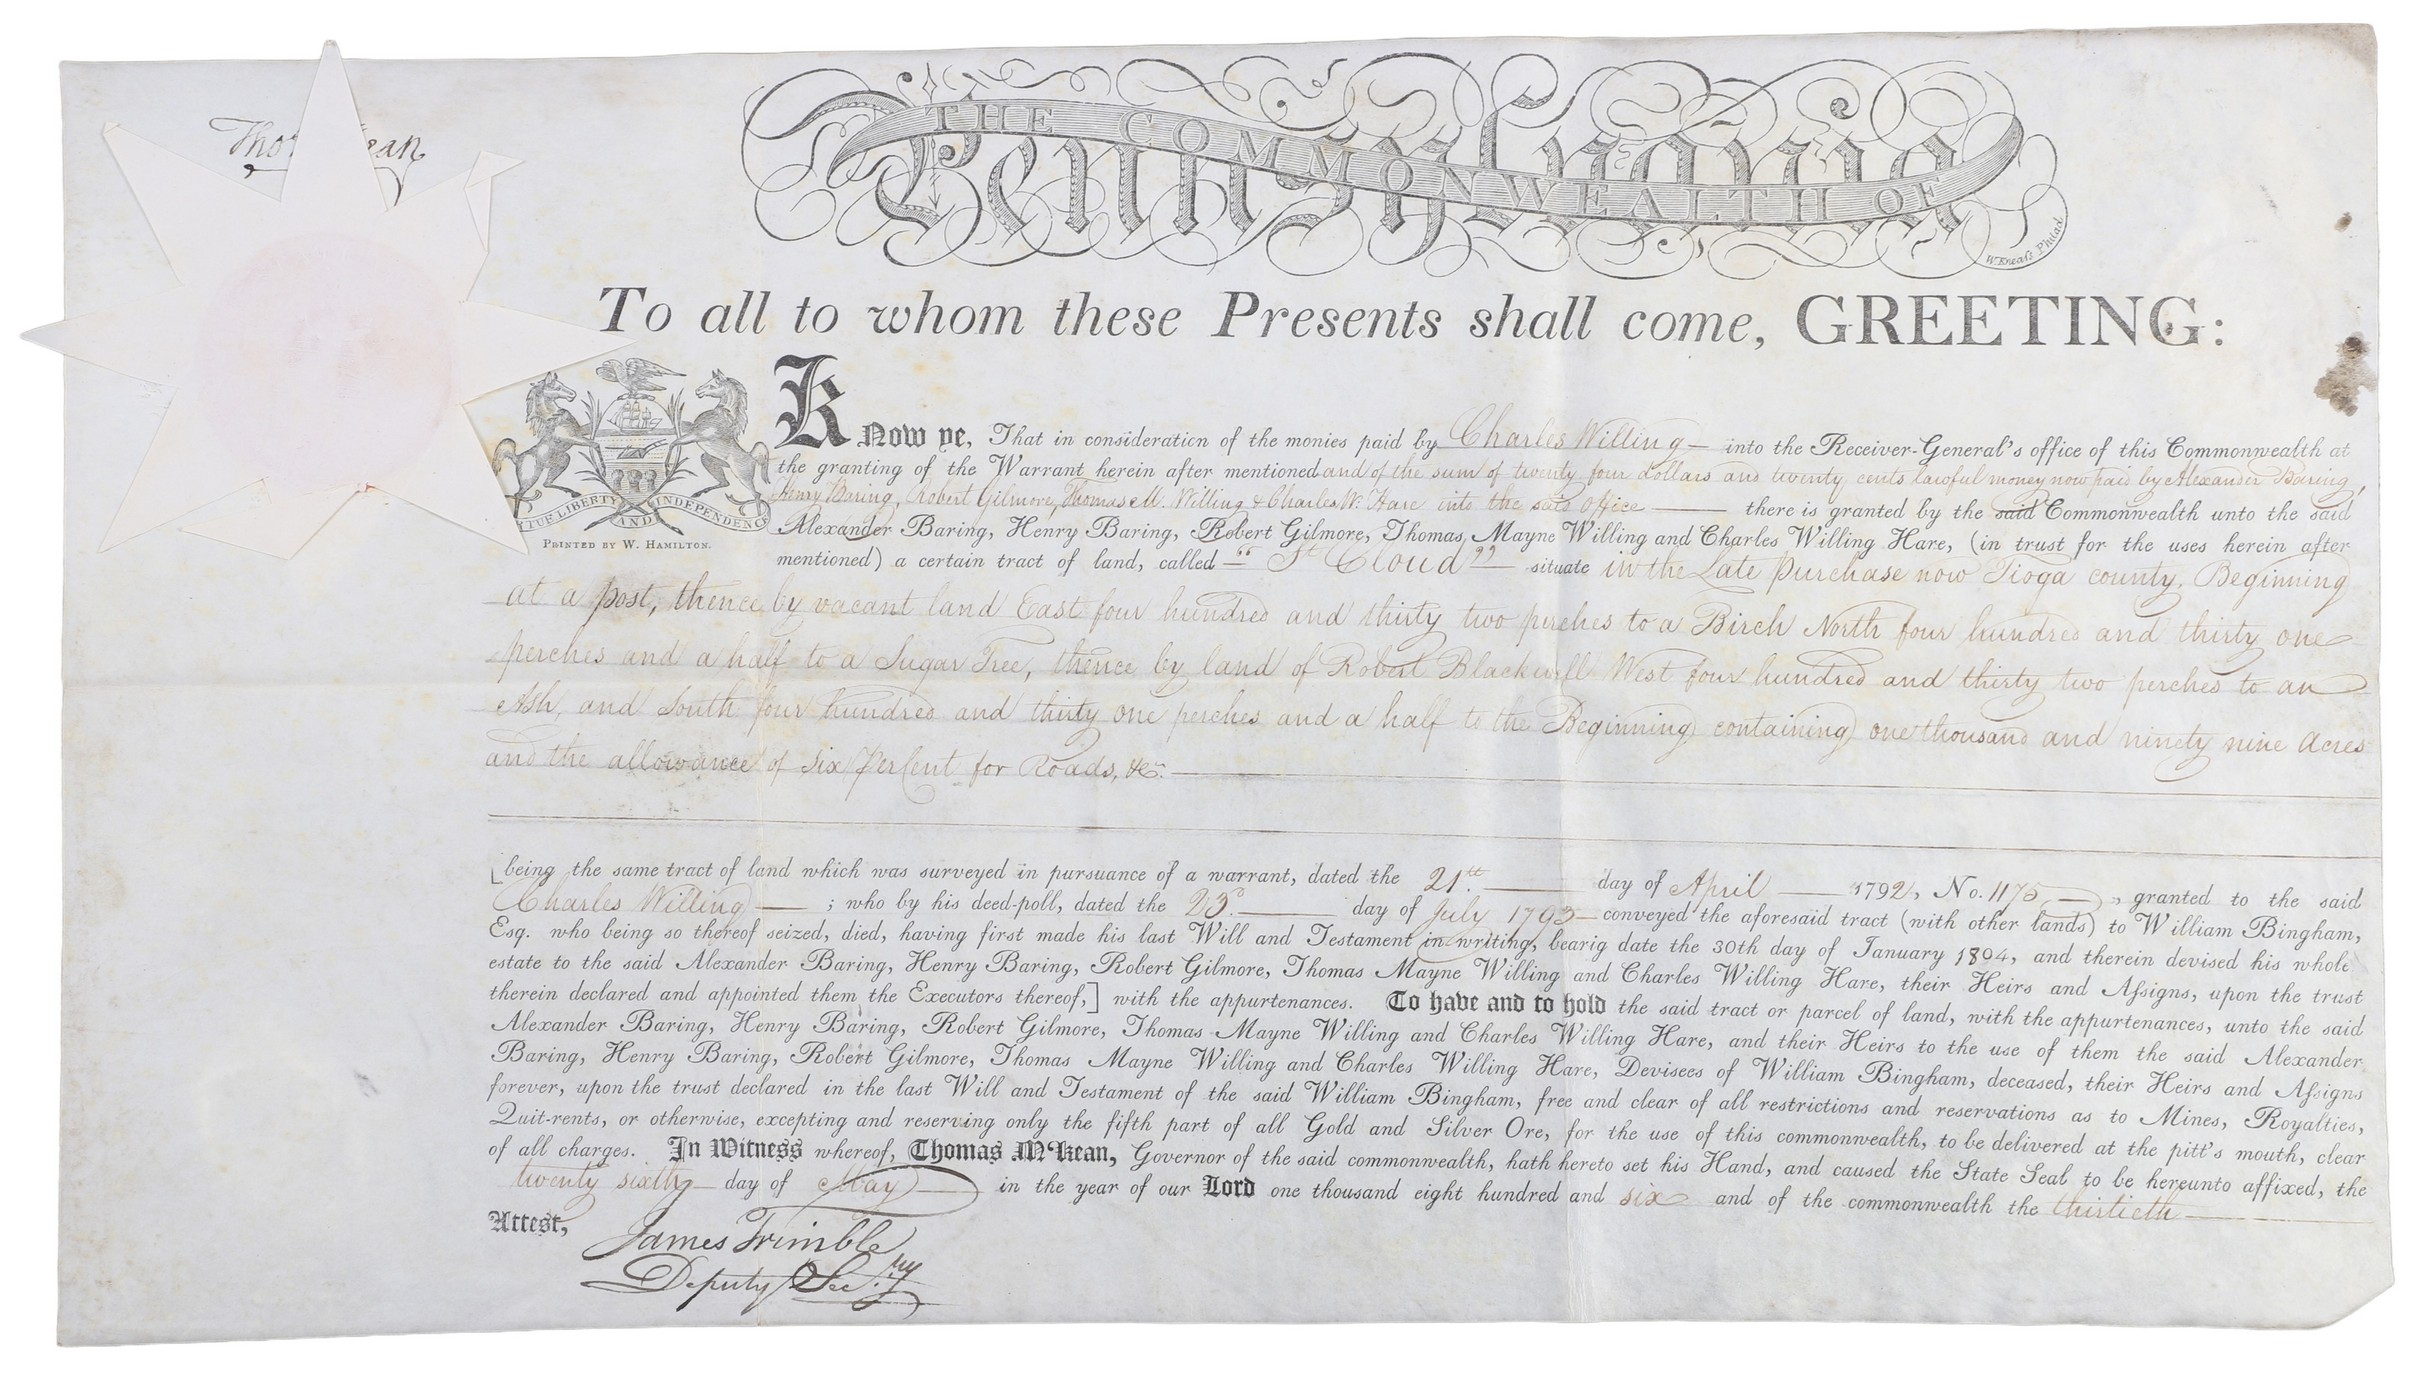 Tho ean
THE COMMONWEALTH OF
Pennsylvania
W Kneass Philad
To all to whom these Presents shall come, GREETING:
Know ye, That in consideration of the monies paid by Charles Willing into the Receiver-General's office of this Commonwealth at
the granting of the Warrant herein after mentioned and of the sum of twenty four dollars and twenty cents lawful money now paid by Alexander Baring,
Henry Baring, Robert Gilmore, Thomas M. Willing & Charles W. Hare into the said office there is granted by the said Commonwealth unto the said
Alexander Baring, Henry Baring, Robert Gilmore, Thomas Mayne Willing and Charles Willing Hare, (in trust for the uses herein after
mentioned) a certain tract of land, called "St Cloud" situate in the Late purchase now Tioga county, Beginning
TUE LIBERTY AND INDEPENDENCE
PRINTED BY W. HAMILTON.
at a post, thence by vacant land East four hundred and thirty two perches to a Birch North four hundred and thirty one
perches and a half to a Sugar Tree, thence by land of Robert Blackwell West four hundred and thirty two perches to an
Ash, and South four hundred and thirty one perches and a half to the Beginning containing one thousand and ninety nine acres
and the allowance of six PerCent for Roads, &c.
[being the same tract of land which was surveyed in pursuance of a warrant, dated the 21st. day of April 1792, No. 1175, granted to the said
Charles Willing ; who by his deed-poll, dated the 23d. day of July 1793 conveyed the aforesaid tract (with other lands) to William Bingham,
Esq. who being so thereof seized, died, having first made his last Will and Testament in writing, bearig date the 30th day of January 1804, and therein devised his whole
estate to the said Alexander Baring, Henry Baring, Robert Gilmore, Thomas Mayne Willing and Charles Willing Hare, their Heirs and Assigns, upon the trust
therein declared and appointed them the Executors thereof,] with the appurtenances. To have and to hold the said tract or parcel of land, with the appurtenances, unto the said
Alexander Baring, Henry Baring, Robert Gilmore, Thomas Mayne Willing and Charles Willing Hare, and their Heirs to the use of them the said Alexander
Baring, Henry Baring, Robert Gilmore, Thomas Mayne Willing and Charles Willing Hare, Devisees of William Bingham, deceased, their Heirs and Assigns
forever, upon the trust declared in the last Will and Testament of the said William Bingham, free and clear of all restrictions and reservations as to Mines, Royalties,
Quit-rents, or otherwise, excepting and reserving only the fifth part of all Gold and Silver Ore, for the use of this commonwealth, to be delivered at the pitt's mouth, clear
of all charges. In Witness whereof, Thomas M'Kean, Governor of the said commonwealth, hath hereto set his Hand, and caused the State Seal to be hereunto affixed, the
twenty sixth day of May in the year of our Lord one thousand eight hundred and six and of the commonwealth the thirtieth
Attest, James Trimble
Deputy Secry